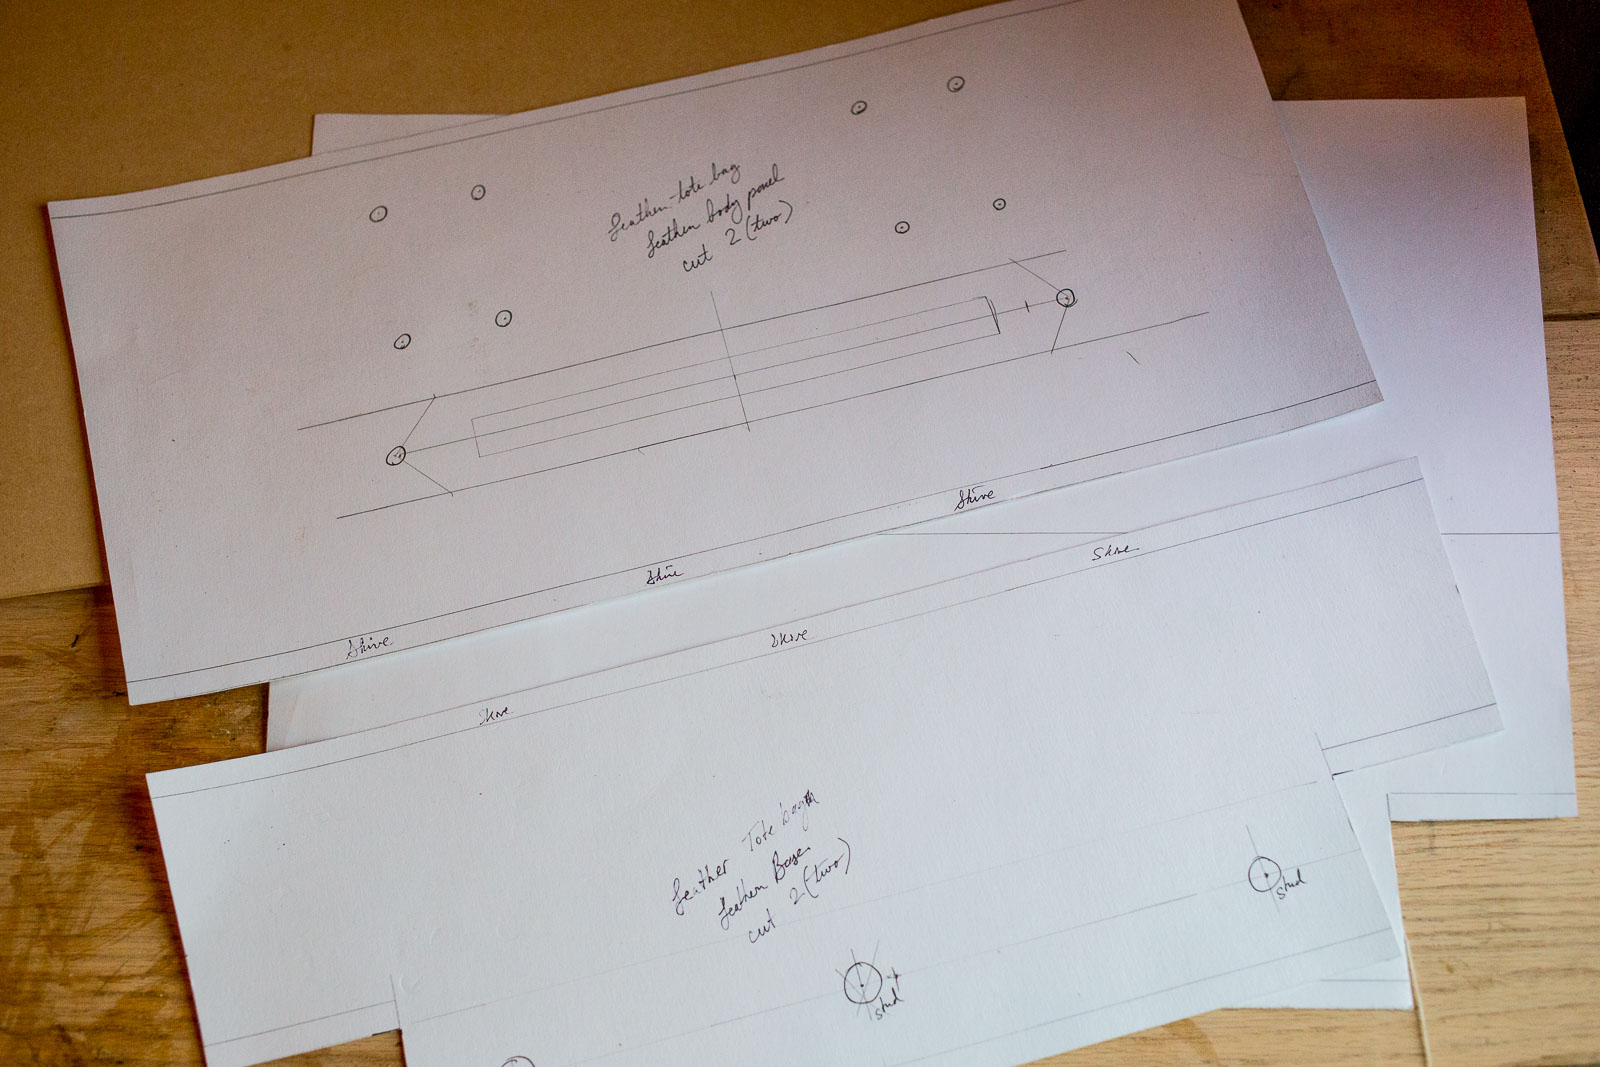 Leather tote bag
Leather body panel
cut 2 (two)
Skive
Skive
Skive
Skive
Skive
Skive
Leather Tote bag
Leather Base
cut 2 (two)
stud
stud